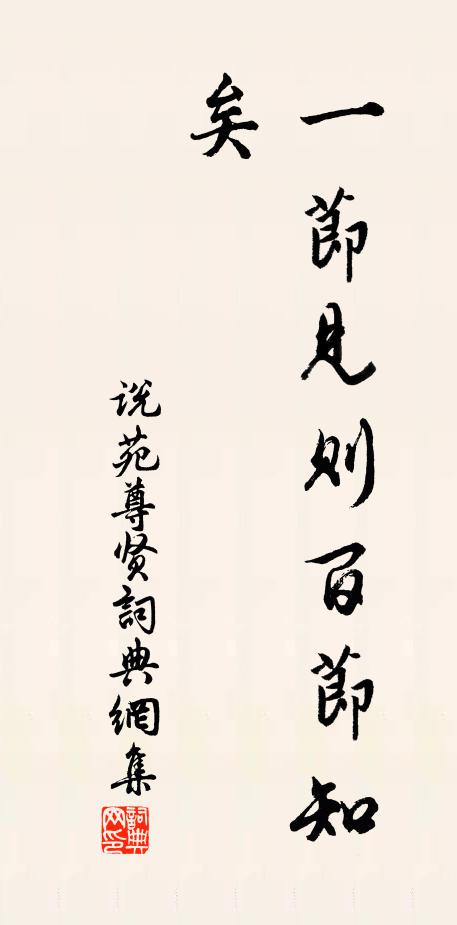 一節見則百節知
矣
说苑尊贤詞典網集
詞典网印